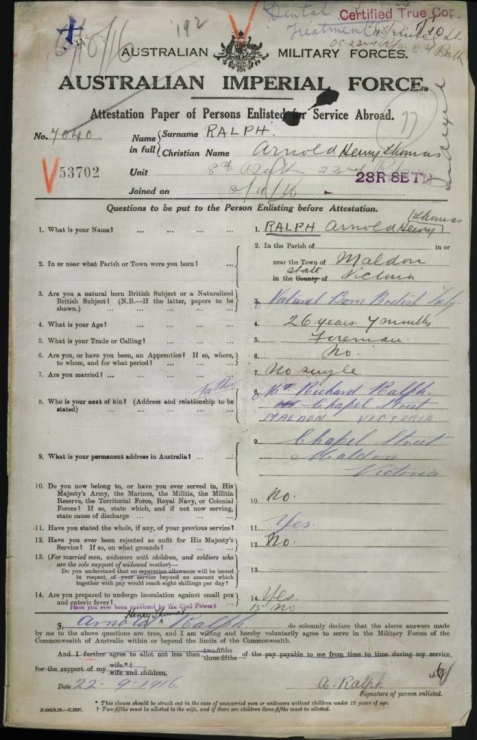 192
Dental
Treatment
Certified True Copy
AUSTRALIAN MILITARY FORCES.
AUSTRALIAN IMPERIAL FORCE.
Attestation Paper of Persons Enlisted for Service Abroad.
No. 7040
Name in full { Surname RALPH.
Christian Name Arnold Henry Thomas
V53702
Unit 8th Battn 23rd
Joined on 2/10/16
28R SETN
Questions to be put to the Person Enlisting before Attestation.
1. What is your Name? ... 1. RALPH Arnold Henry (Thomas
2. In or near what Parish or Town were you born? ... 2. In the Parish of in or
near the Town of Maldon
in the County of State Victoria
3. Are you a natural born British Subject or a Naturalized
British Subject? (N.B.—If the latter, papers to be
shown.) ... 3. Natural Born British Subj.
4. What is your Age? ... 4. 26 years 7 months
5. What is your Trade or Calling? ... 5. Fireman
6. Are you, or have you been, an Apprentice? If so, where,
to whom, and for what period? ... 6. No.
7. Are you married? ... 7. No single
8. Who is your next of kin? (Address and relationship to be
stated) ... father 8. Mr Richard Ralph
Chapel Street
MALDON VICTORIA
9. What is your permanent address in Australia? ... 9. Chapel Street
Maldon
Victoria
10. Do you now belong to, or have you ever served in, His
Majesty's Army, the Marines, the Militia, the Militia
Reserve, the Territorial Force, Royal Navy, or Colonial
Forces? If so, state which, and if not now serving,
state cause of discharge ... 10. No.
11. Have you stated the whole, if any, of your previous service? 11. Yes.
12. Have you ever been rejected as unfit for His Majesty's
Service? If so, on what grounds? ... 12. No.
13. (For married men, widowers with children, and soldiers who
are the sole support of widowed mother)—
Do you understand that no separation allowance will be issued
in respect of your service beyond an amount which
together with pay would reach eight shillings per day? 13.
14. Are you prepared to undergo inoculation against small pox
and enteric fever? 14. Yes.
Have you ever been convicted by the Civil Power? 15. no
I, Arnold Henry Thomas Ralph do solemnly declare that the above answers made
by me to the above questions are true, and I am willing and hereby voluntarily agree to serve in the Military Forces of the
Commonwealth of Australia within or beyond the limits of the Commonwealth.
And I further agree to allot not less than two-fifths three-fifths of the pay payable to me from time to time during my service
for the support of my wife* † wife and children.
Date 22-9-1916.
A. Ralph
Signature of person enlisted.
* This clause should be struck out in the case of unmarried men or widowers without children under 18 years of age.
† Two-fifths must be allotted to the wife, and if there are children three-fifths must be allotted.